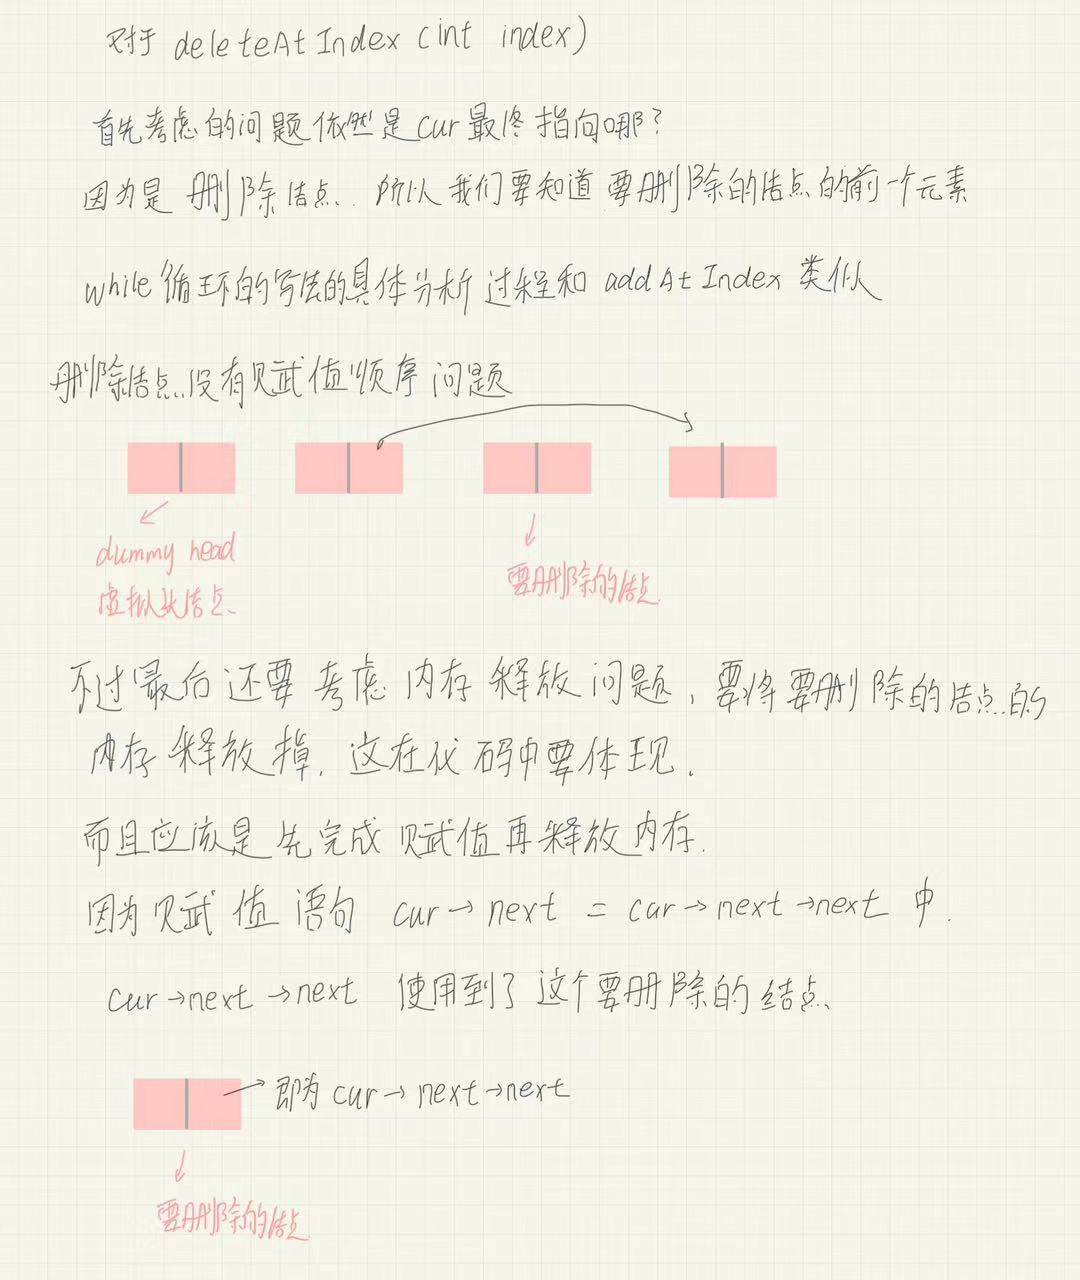 对于 deleteAtIndex (int index)
首先考虑的问题依然是cur最终指向哪?
因为是 删除结点. 所以我们要知道 要删除的结点的前一个元素
while循环的写法的具体分析过程和 addAtIndex 类似
删除结点没有赋值顺序问题
dummy head
虚拟头结点
要删除的结点
不过最后还要考虑内存释放问题, 要将要删除的结点的
内存释放掉. 这在代码中要体现.
而且应该是先完成赋值再释放内存.
因为赋值语句 cur→next = cur→next→next 中.
cur→next→next 使用到了这个要删除的结点
即为 cur→next→next
要删除的结点